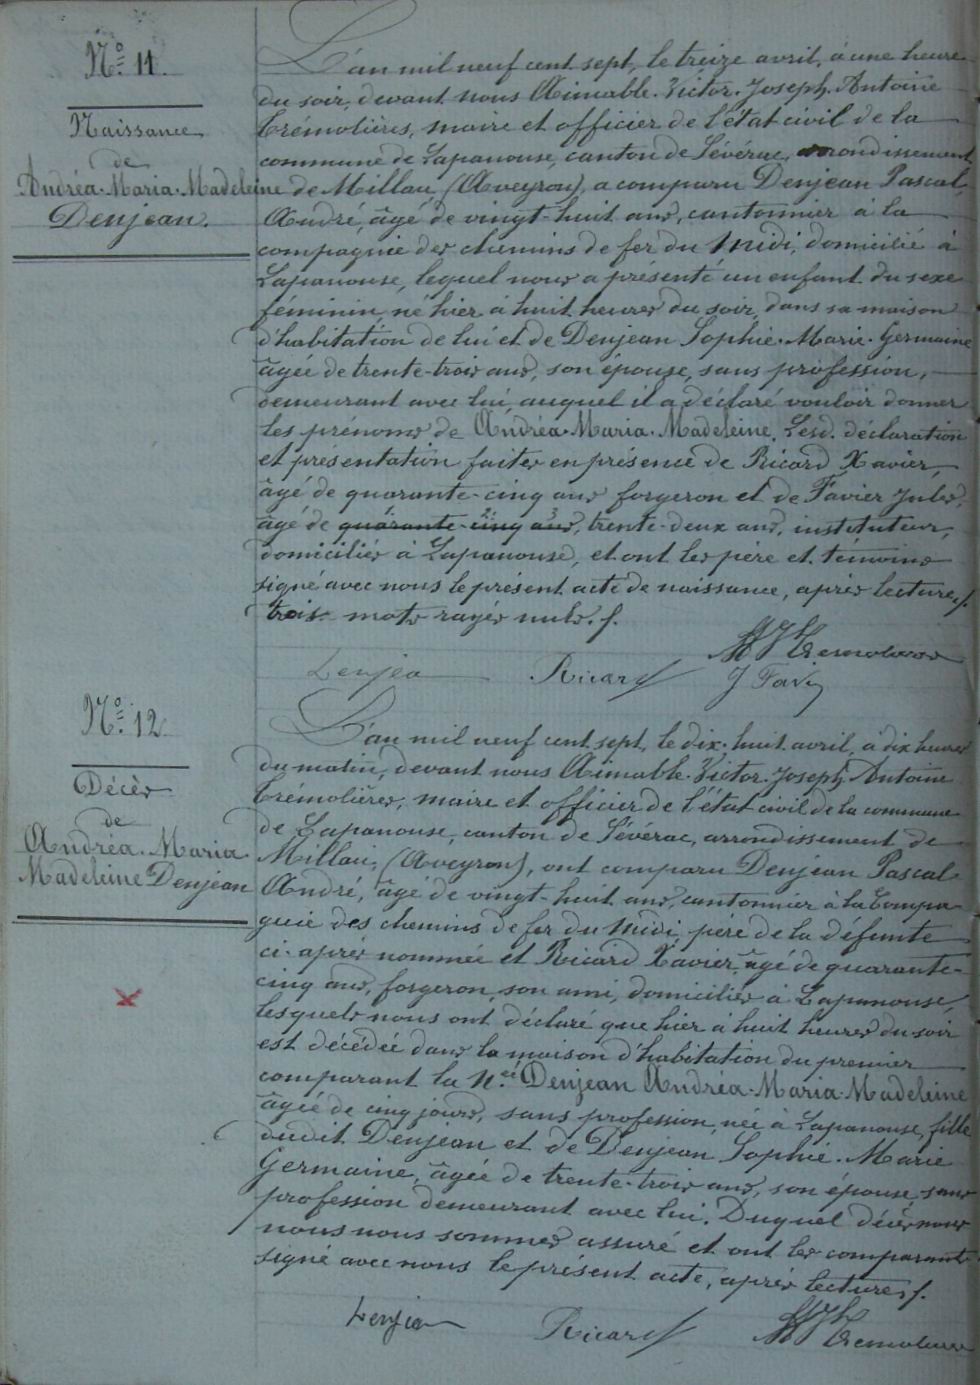 N.º 11.
Naissance
de
Andréa. Maria. Madeleine
Denjean.
L'an mil neuf cent sept, le treize avril, à une heure
du soir, devant nous Aimable. Victor. Joseph. Antoine
Crémolières, maire et officier de l'état civil de la
commune de Lapanouse, canton de Sévérac, arrondissement
de Millau, (Aveyron), a comparu Denjean Pascal
André, âgé de vingt-huit ans, cantonnier à la
compagnie des chemins de fer du Midi, domicilié à
Lapanouse, lequel nous a présenté un enfant du sexe
féminin, né hier à huit heures du soir, dans sa maison
d'habitation de lui et de Denjean Sophie. Marie. Germaine
âgée de trente-trois ans, son épouse, sans profession,
demeurant avec lui, auquel il a déclaré vouloir donner
les prénoms de Andréa. Maria. Madeleine. Lesd. déclaration
et présentation faites en présence de Ricard Xavier,
âgé de quarante-cinq ans forgeron et de Favier Jules,
âgé de quarante-cinq ans, trente-deux ans, instituteur,
domiciliés à Lapanouse, et ont les père et témoins
signé avec nous le présent acte de naissance, après lecture./.
trois mots rayés nuls./.
Denjea Ricard Cremolieres
J Favi
N.º 12.
Décès
de
Andréa. Maria.
Madeleine Denjean
L'an mil neuf cent sept, le dix-huit avril, à dix heures
du matin, devant nous Aimable. Victor. Joseph. Antoine
Crémolières, maire et officier de l'état civil de la commune
de Lapanouse, canton de Sévérac, arrondissement de
Millau, (Aveyron), ont comparu Denjean Pascal
André, âgé de vingt-huit ans, cantonnier à la Compa-
gnie des chemins de fer du Midi, père de la défunte
ci-après nommée et Ricard Xavier, âgé de quarante-
cinq ans, forgeron, son ami, domiciliés à Lapanouse,
lesquels nous ont déclaré que hier à huit heures du soir
est décédée dans la maison d'habitation du premier
comparant la n.ée Denjean Andréa. Maria. Madeleine
âgée de cinq jours, sans profession, née à Lapanouse, fille
dudit Denjean et de Denjean Sophie. Marie
Germaine, âgée de trente-trois ans, son épouse, sans
profession demeurant avec lui. Duquel décès nous
nous nous sommes assuré et ont les comparants
signé avec nous le présent acte, après lecture./.
Denjea Ricard Cremolieres